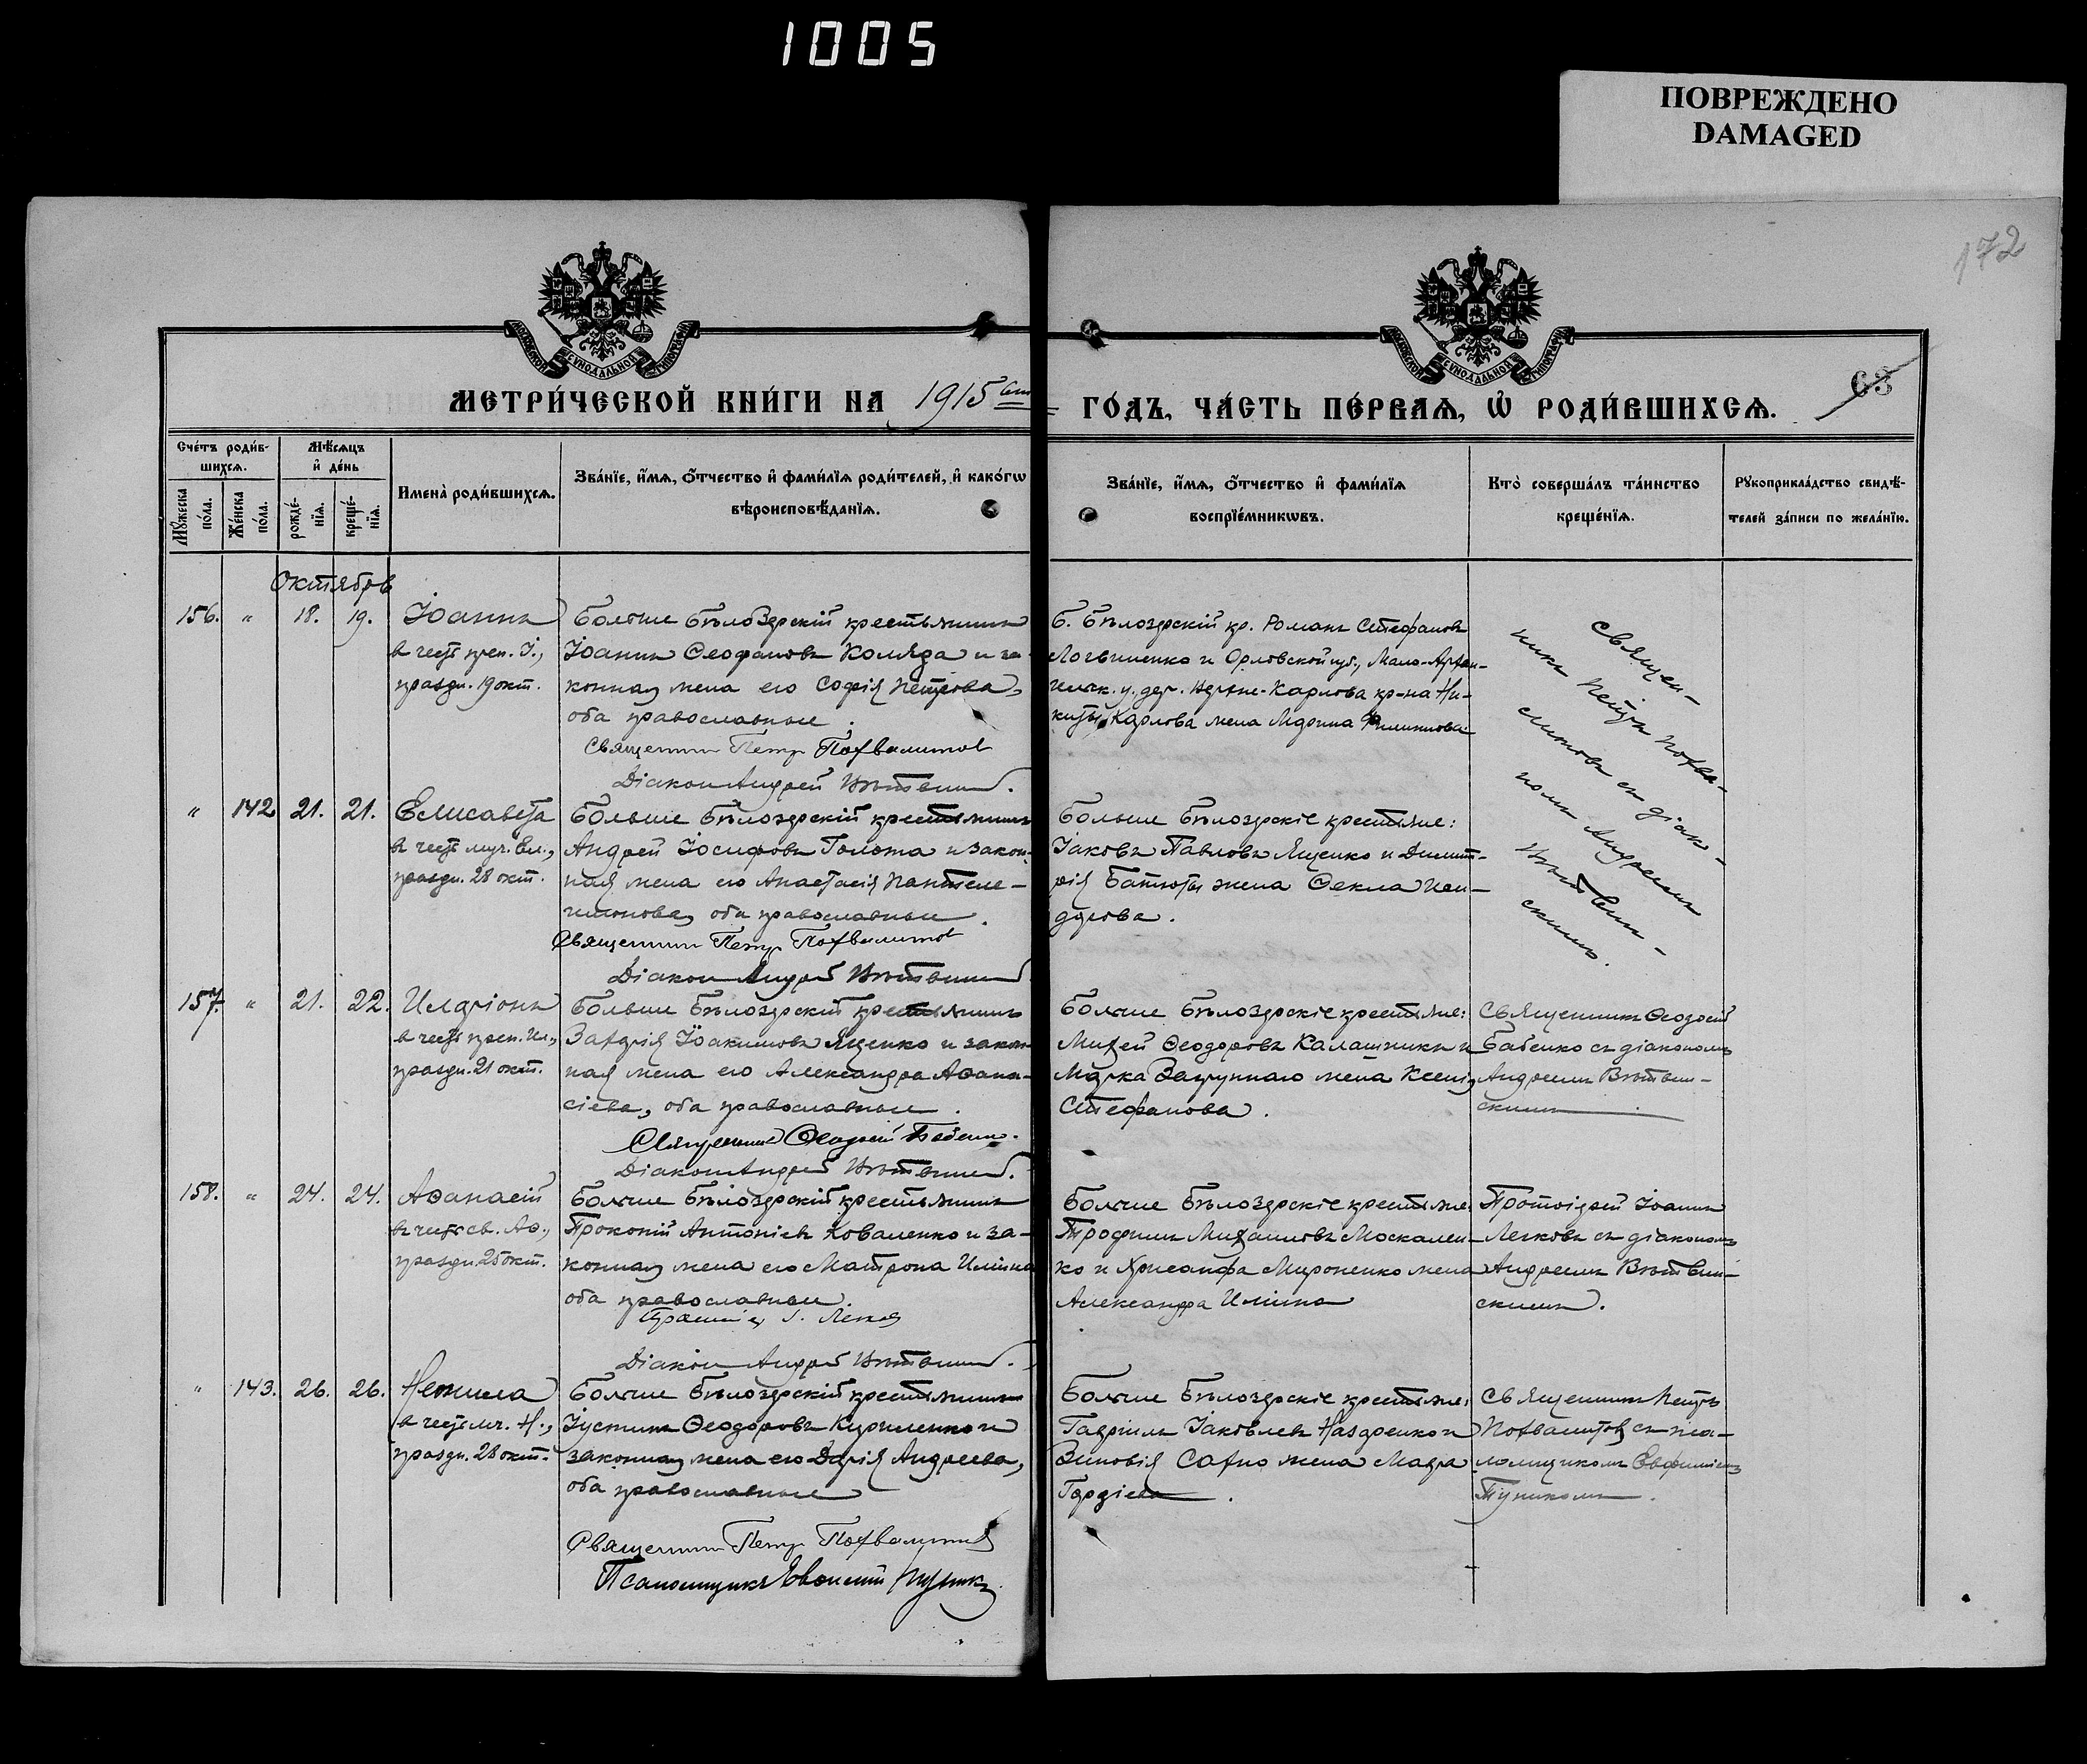 1005
ПОВРЕЖДЕНО
DAMAGED
172
МОСКОВСКОЙ СУНОДАЛЬНОЙ ТИПОГРАФІИ
МОСКОВСКОЙ СУНОДАЛЬНОЙ ТИПОГРАФІИ
63
МЕТРИ́ЧЕСКОЙ КНИ́ГИ НА 1915
ГО́ДЪ, ЧА́СТЬ ПЕ́РВАѦ, Ѡ҆ РОДИ́ВШИХСѦ.
Сче́тъ роди́в-
шихсѧ.
Мѣ́сѧцъ
и҆ де́нь
Мꙋ́жеска
по́ла.
Же́нска
по́ла.
рожде́-
нїѧ.
креще́-
нїѧ.
Имена̀ роди́вшихсѧ.
Зва́нїе, и҆́мѧ, ѻ҆́тчество и҆ фами́лїѧ роди́телей, и҆ како́гѡ
вѣроисповѣ́данїѧ.
Зва́нїе, и҆́мѧ, ѻ҆́тчество и҆ фами́лїѧ
воспрїе́мникѡвъ.
Кто̀ соверша́лъ та́инство
креще́нїѧ.
Рꙋкоприкла́дство свидѣ́-
телей за́писи по жела́нїю.
Октябрь
156. " 18. 19. Іоаннъ
в честь преп. І.,
праздн. 19 окт.
Больше Бѣлозерскій крестьянинъ
Іоаннъ Ѳеофановъ Коляда и за-
конная жена его Софія Петрова,
оба православные.
Священник Петр Похвалитов
Діакон Андрей
Б. Бѣлозерскій кр. Романъ Стефановъ
Логвиненко и Орловской губ., Мало-Архан-
гельск. у. дер. Карлова кр-на Ни-
киты Карлова жена Марина Филиппова
Священ-
никъ Петръ Похва-
литовъ съ діако-
номъ Андреемъ
скимъ.
" 142 21. 21. Елисавета
в честь муч. Ел.,
праздн. 28 окт.
Больше Бѣлозерскій крестьянинъ
Андрей Іосифовъ Голота и закон-
ная жена его Анастасія Пантеле-
имонова, оба православные.
Священник Петр Похвалитов
Діакон Андрей
Больше Бѣлозерскіе крестьяне:
Іаковъ Павловъ Яценко и Димит-
рія Батюты жена Ѳекла
157. " 21. 22. Иларіонъ
в честь преп. Ил.,
праздн. 21 окт.
Больше Бѣлозерскій крестьянинъ
Захарія Іоакимовъ Яценко и закон-
ная жена его Александра Аѳана-
сіева, оба православные.
Священник Ѳеодосій Бабенко.
Діакон Андрей
Больше Бѣлозерскіе крестьяне:
Михей Ѳеодоровъ Калашникъ и
Марка жена Ксенія
Стефанова.
Священникъ Ѳеодосій
Бабенко съ діакономъ
Андреемъ
скимъ
158. " 24. 24. Аѳанасій
в честь св. Аѳ.,
праздн. 25 окт.
Больше Бѣлозерскій крестьянинъ
Прокопій Антоніевъ Коваленко и за-
конная жена его Матрона Иліина
оба православные.
Діакон Андрей
Больше Бѣлозерскіе крестьяне:
Трофимъ Михаиловъ Москален-
ко и Хрисанфа Мироненко жена
Александра Иліина
Протоіерей Іоаннъ
Легковъ съ діакономъ
Андреемъ
скимъ.
" 143. 26. 26. Неонила
в честь мч. Н.,
праздн. 28 окт.
Больше Бѣлозерскій крестьянинъ
Іустинъ Ѳеодоровъ Кириленко и
законная жена его Дарія Андреева,
оба православные
Священник Петр Похвалитов
Псаломщикъ Евѳимій
Больше Бѣлозерскіе крестьяне:
Гавріилъ Іаковлевъ Назаренко и
Зиновія Сахно жена Мавра
Гордіева.
Священникъ Петръ
Похвалитовъ съ пса-
ломщикомъ Евфиміемъ